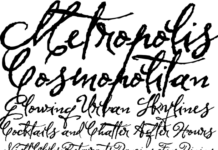 Metropolis
Cosmopolitan
Glowing Urban Skylines
Cocktails and Chatter After Hours